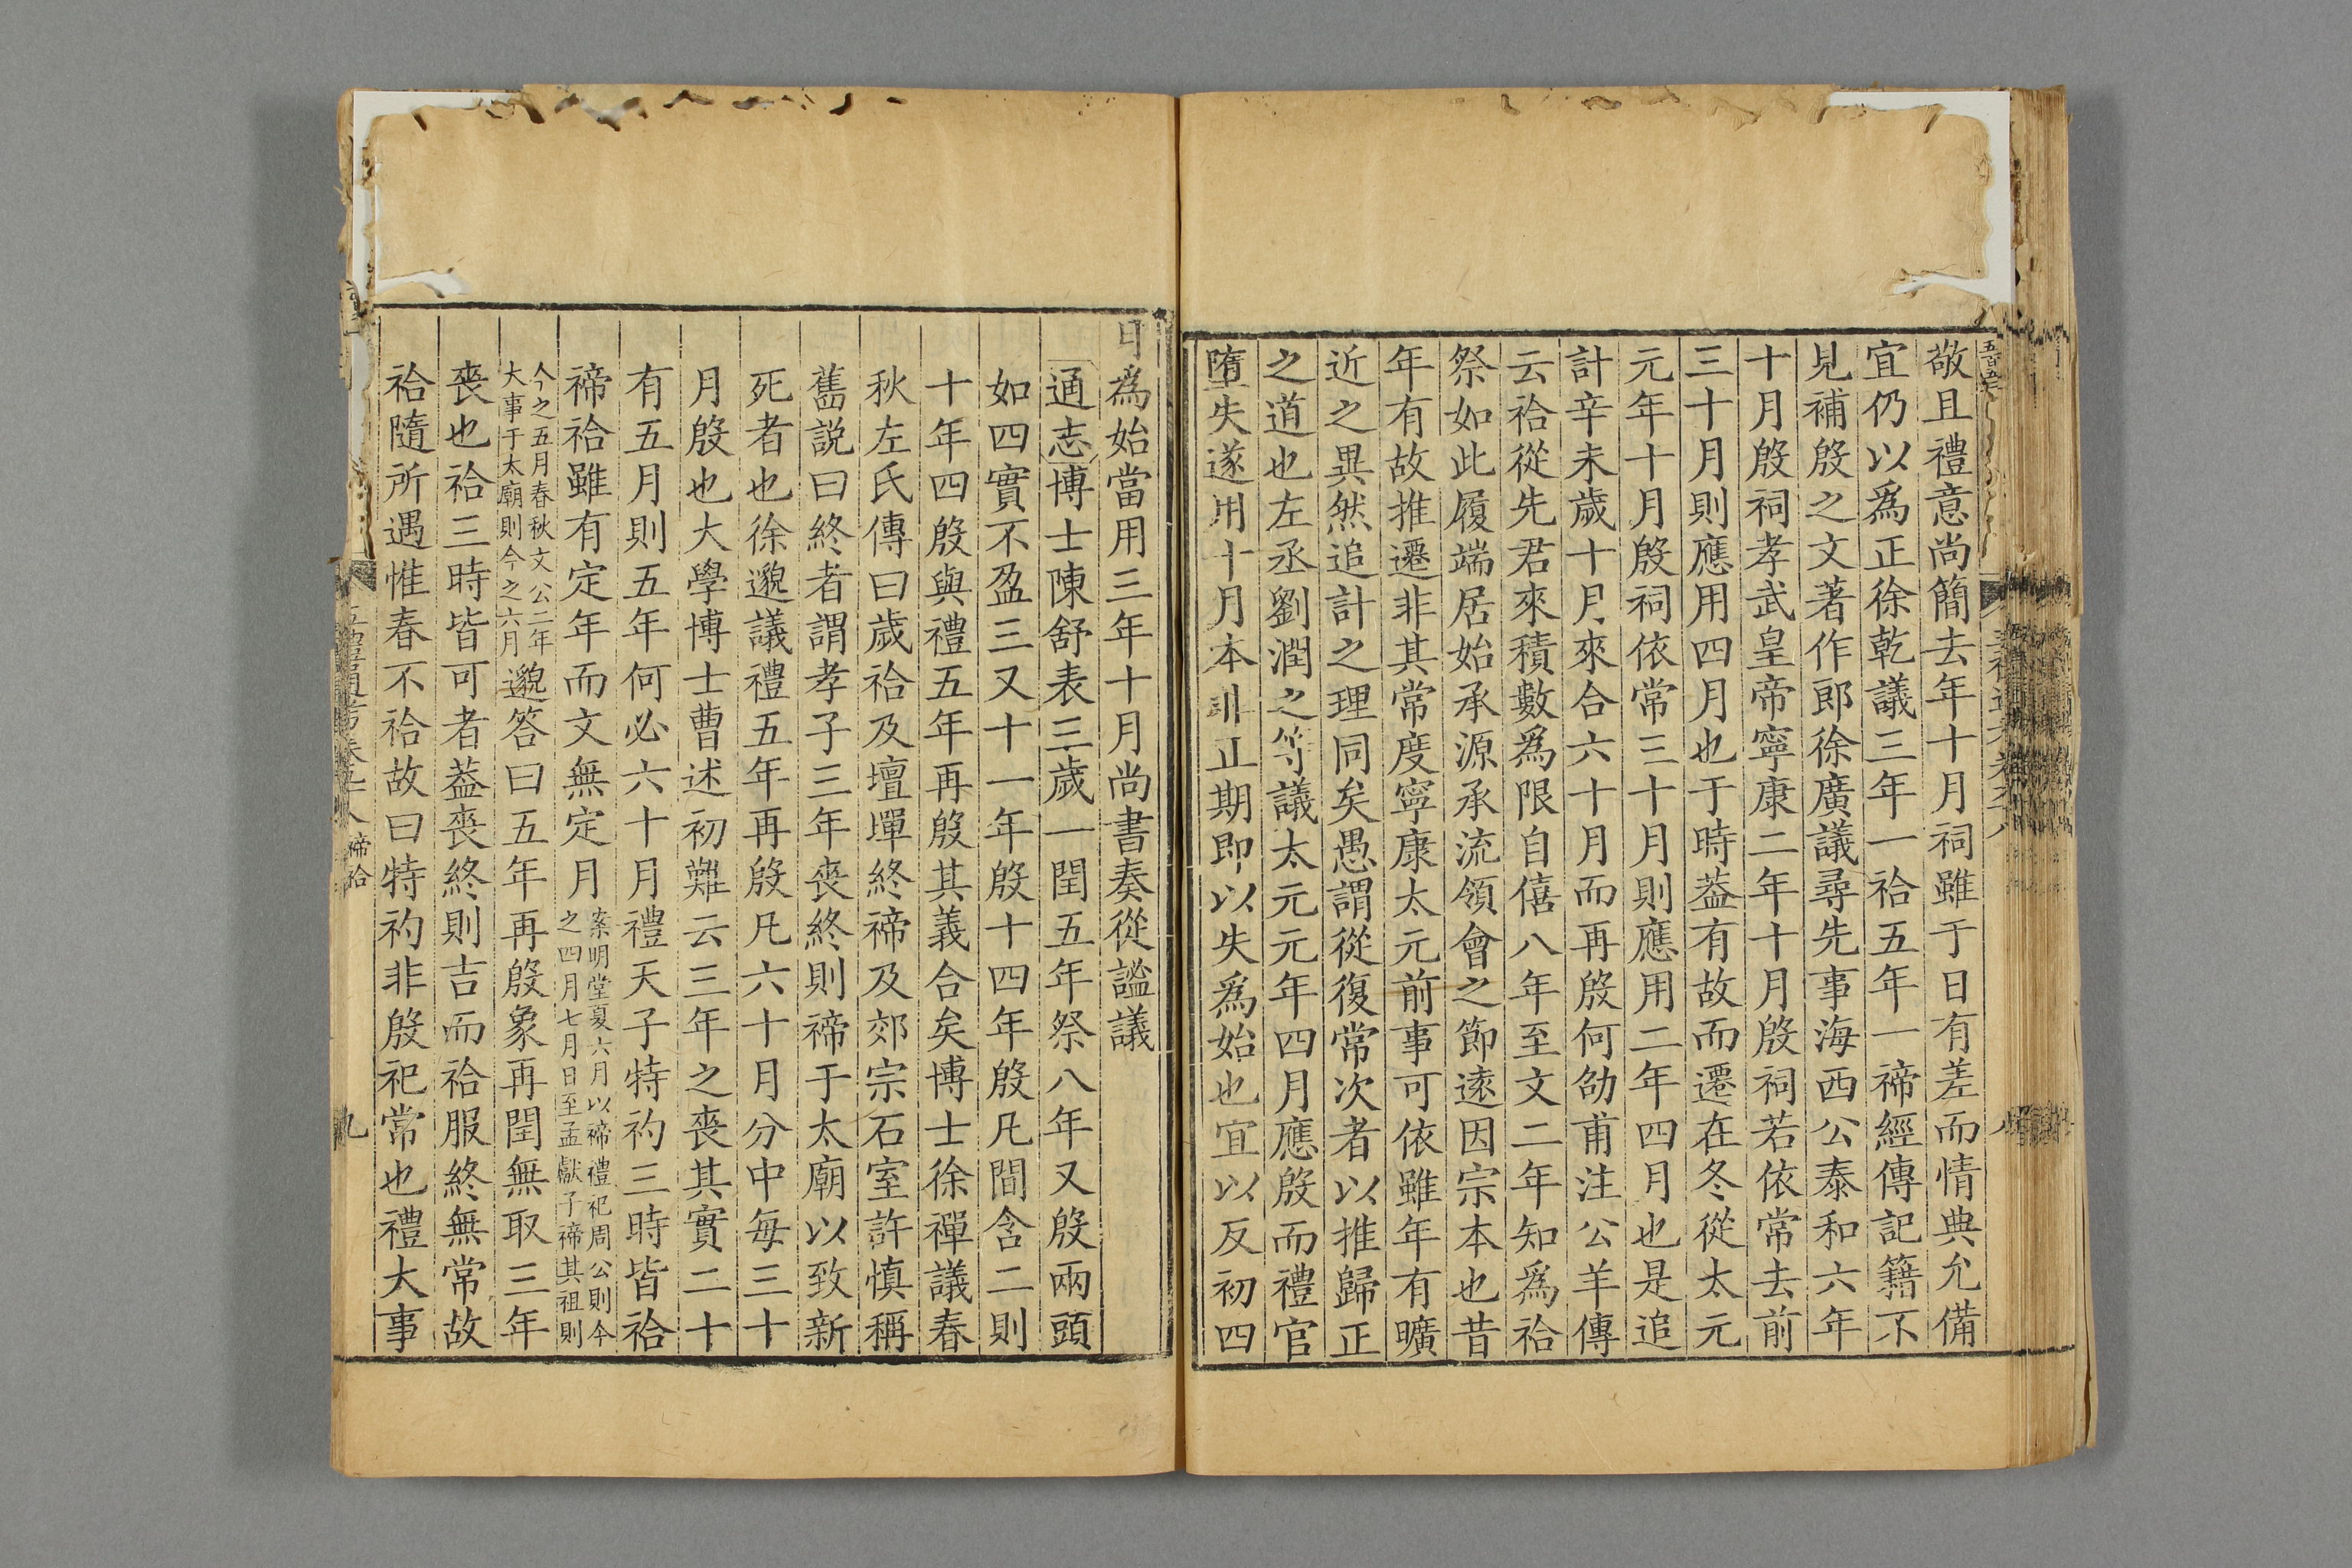 敬且禮意尚簡去年十月祠雖于日有差而情典允備
宜仍以爲正徐乾議三年一祫五年一禘經傳記籍不
見補殷之文著作郎徐廣議尋先事海西公泰和六年
十月殷祠孝武皇帝寧康二年十月殷祠若依常去前
三十月則應用四月也于時葢有故而遷在冬從太元
元年十月殷祠依常三十月則應用二年四月也是追
計辛未歲十月來合六十月而再殷何劭甫注公羊傳
云祫從先君來積數爲限自僖八年至文二年知爲祫
祭如此履端居始承源承流領會之節遠因宗本也昔
年有故推遷非其常度寧康太元前事可依雖年有曠
近之異然追計之理同矣愚謂從復常次者以推歸正
之道也左丞劉潤之等議太元元年四月應殷而禮官
墮失遂用十月本非正期即以失爲始也宜以反初四
月爲始當用三年十月尚書奏從謐議
通志博士陳舒表三歲一閏五年祭八年又殷兩頭
如四實不盈三又十一年殷十四年殷凡間含二則
十年四殷與禮五年再殷其義合矣博士徐禪議春
秋左氏傳曰歲祫及壇墠終禘及郊宗石室許慎稱
舊説曰終者謂孝子三年喪終則禘于太廟以致新
死者也徐邈議禮五年再殷凡六十月分中每三十
月殷也大學博士曹述初難云三年之喪其實二十
有五月則五年何必六十月禮天子特礿三時皆祫
禘祫雖有定年而文無定月案明堂夏六月以禘禮祀周公則今
之四月七月日至孟獻子禘其祖則
今之五月春秋文公二年
大事于太廟則今之六月邈答曰五年再殷象再閏無取三年
喪也祫三時皆可者葢喪終則吉而祫服終無常故
祫隨所遇惟春不祫故曰特礿非殷祀常也禮大事
禘祫
九